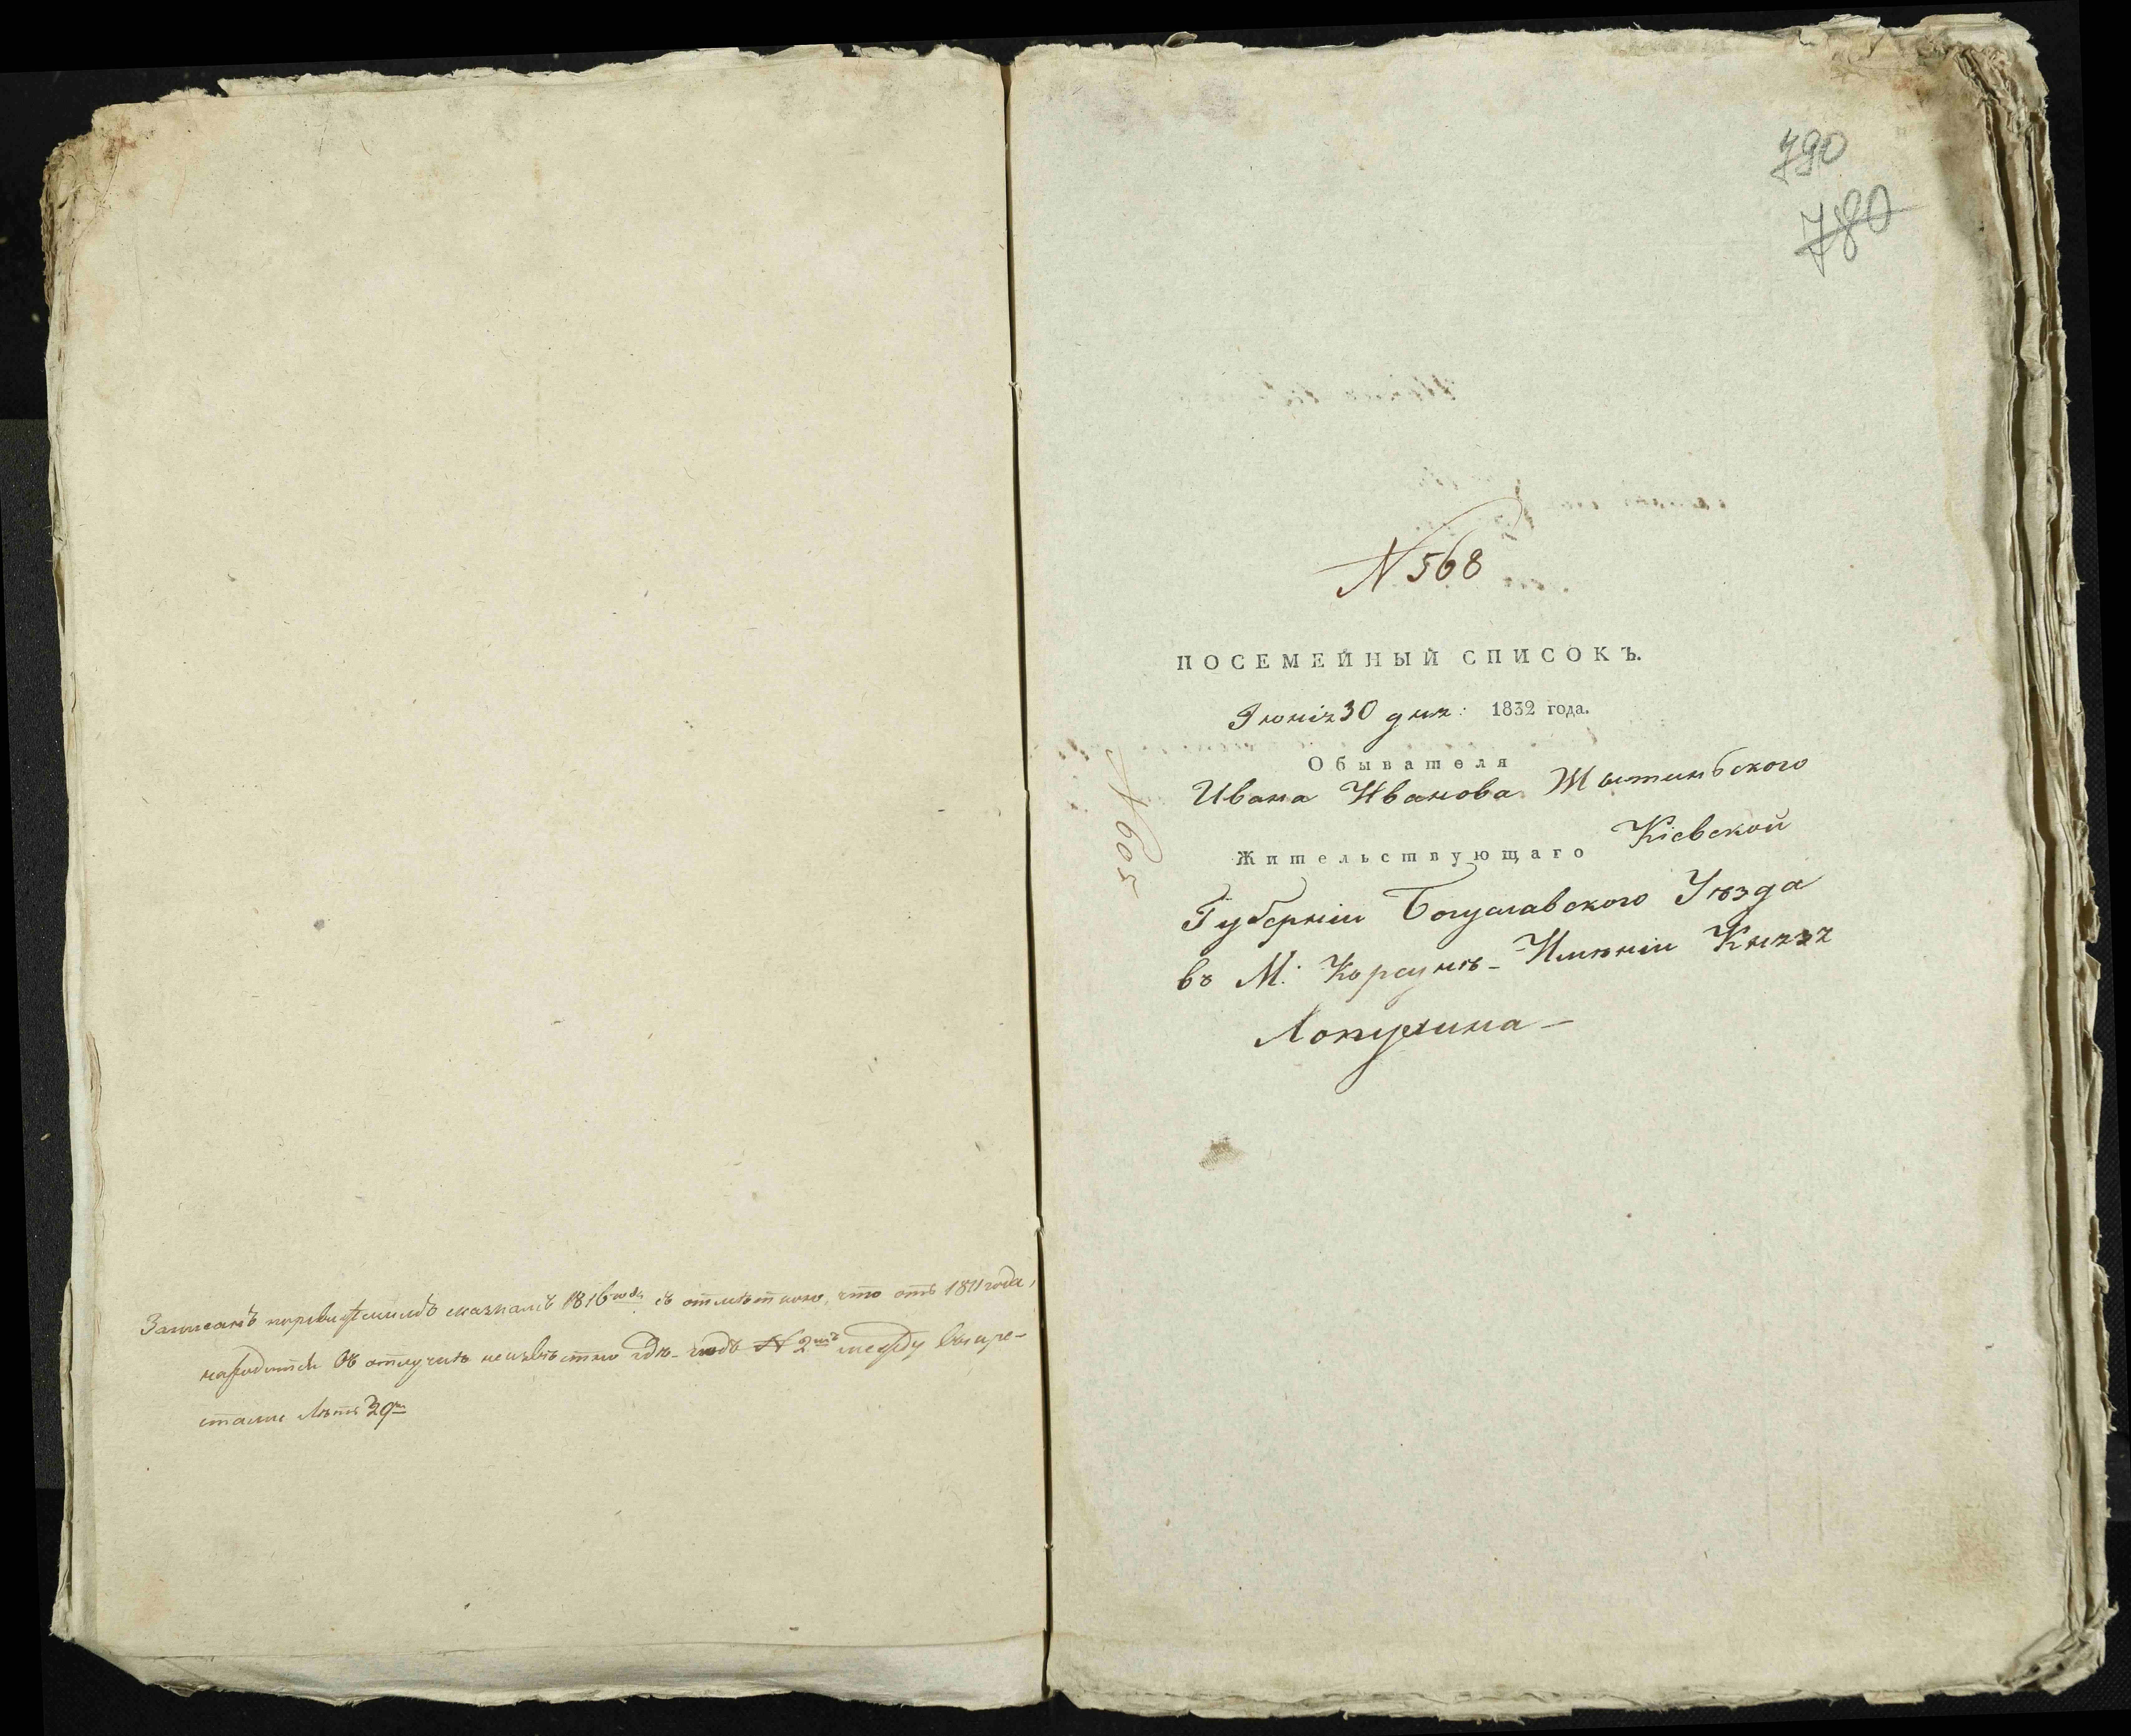 Записанъ поревизскимъ сказкамъ 1816 года съ отмѣткою, что отъ 1811 года,
находится въ отлучкѣ неизвѣстно гдѣ - подъ N 2мъ между
лѣтъ 39
790
780
N 568
ПОСЕМЕЙНЫЙ СПИСОКЪ.
Іюнія 30 дня: 1832 года.
Обывателя
Ивана Иванова
Жительствующаго Кіевской
Губерніи Богуславского Уѣзда
въ М: Корсунѣ - Имѣніи Князя
Лопухина -
N 605